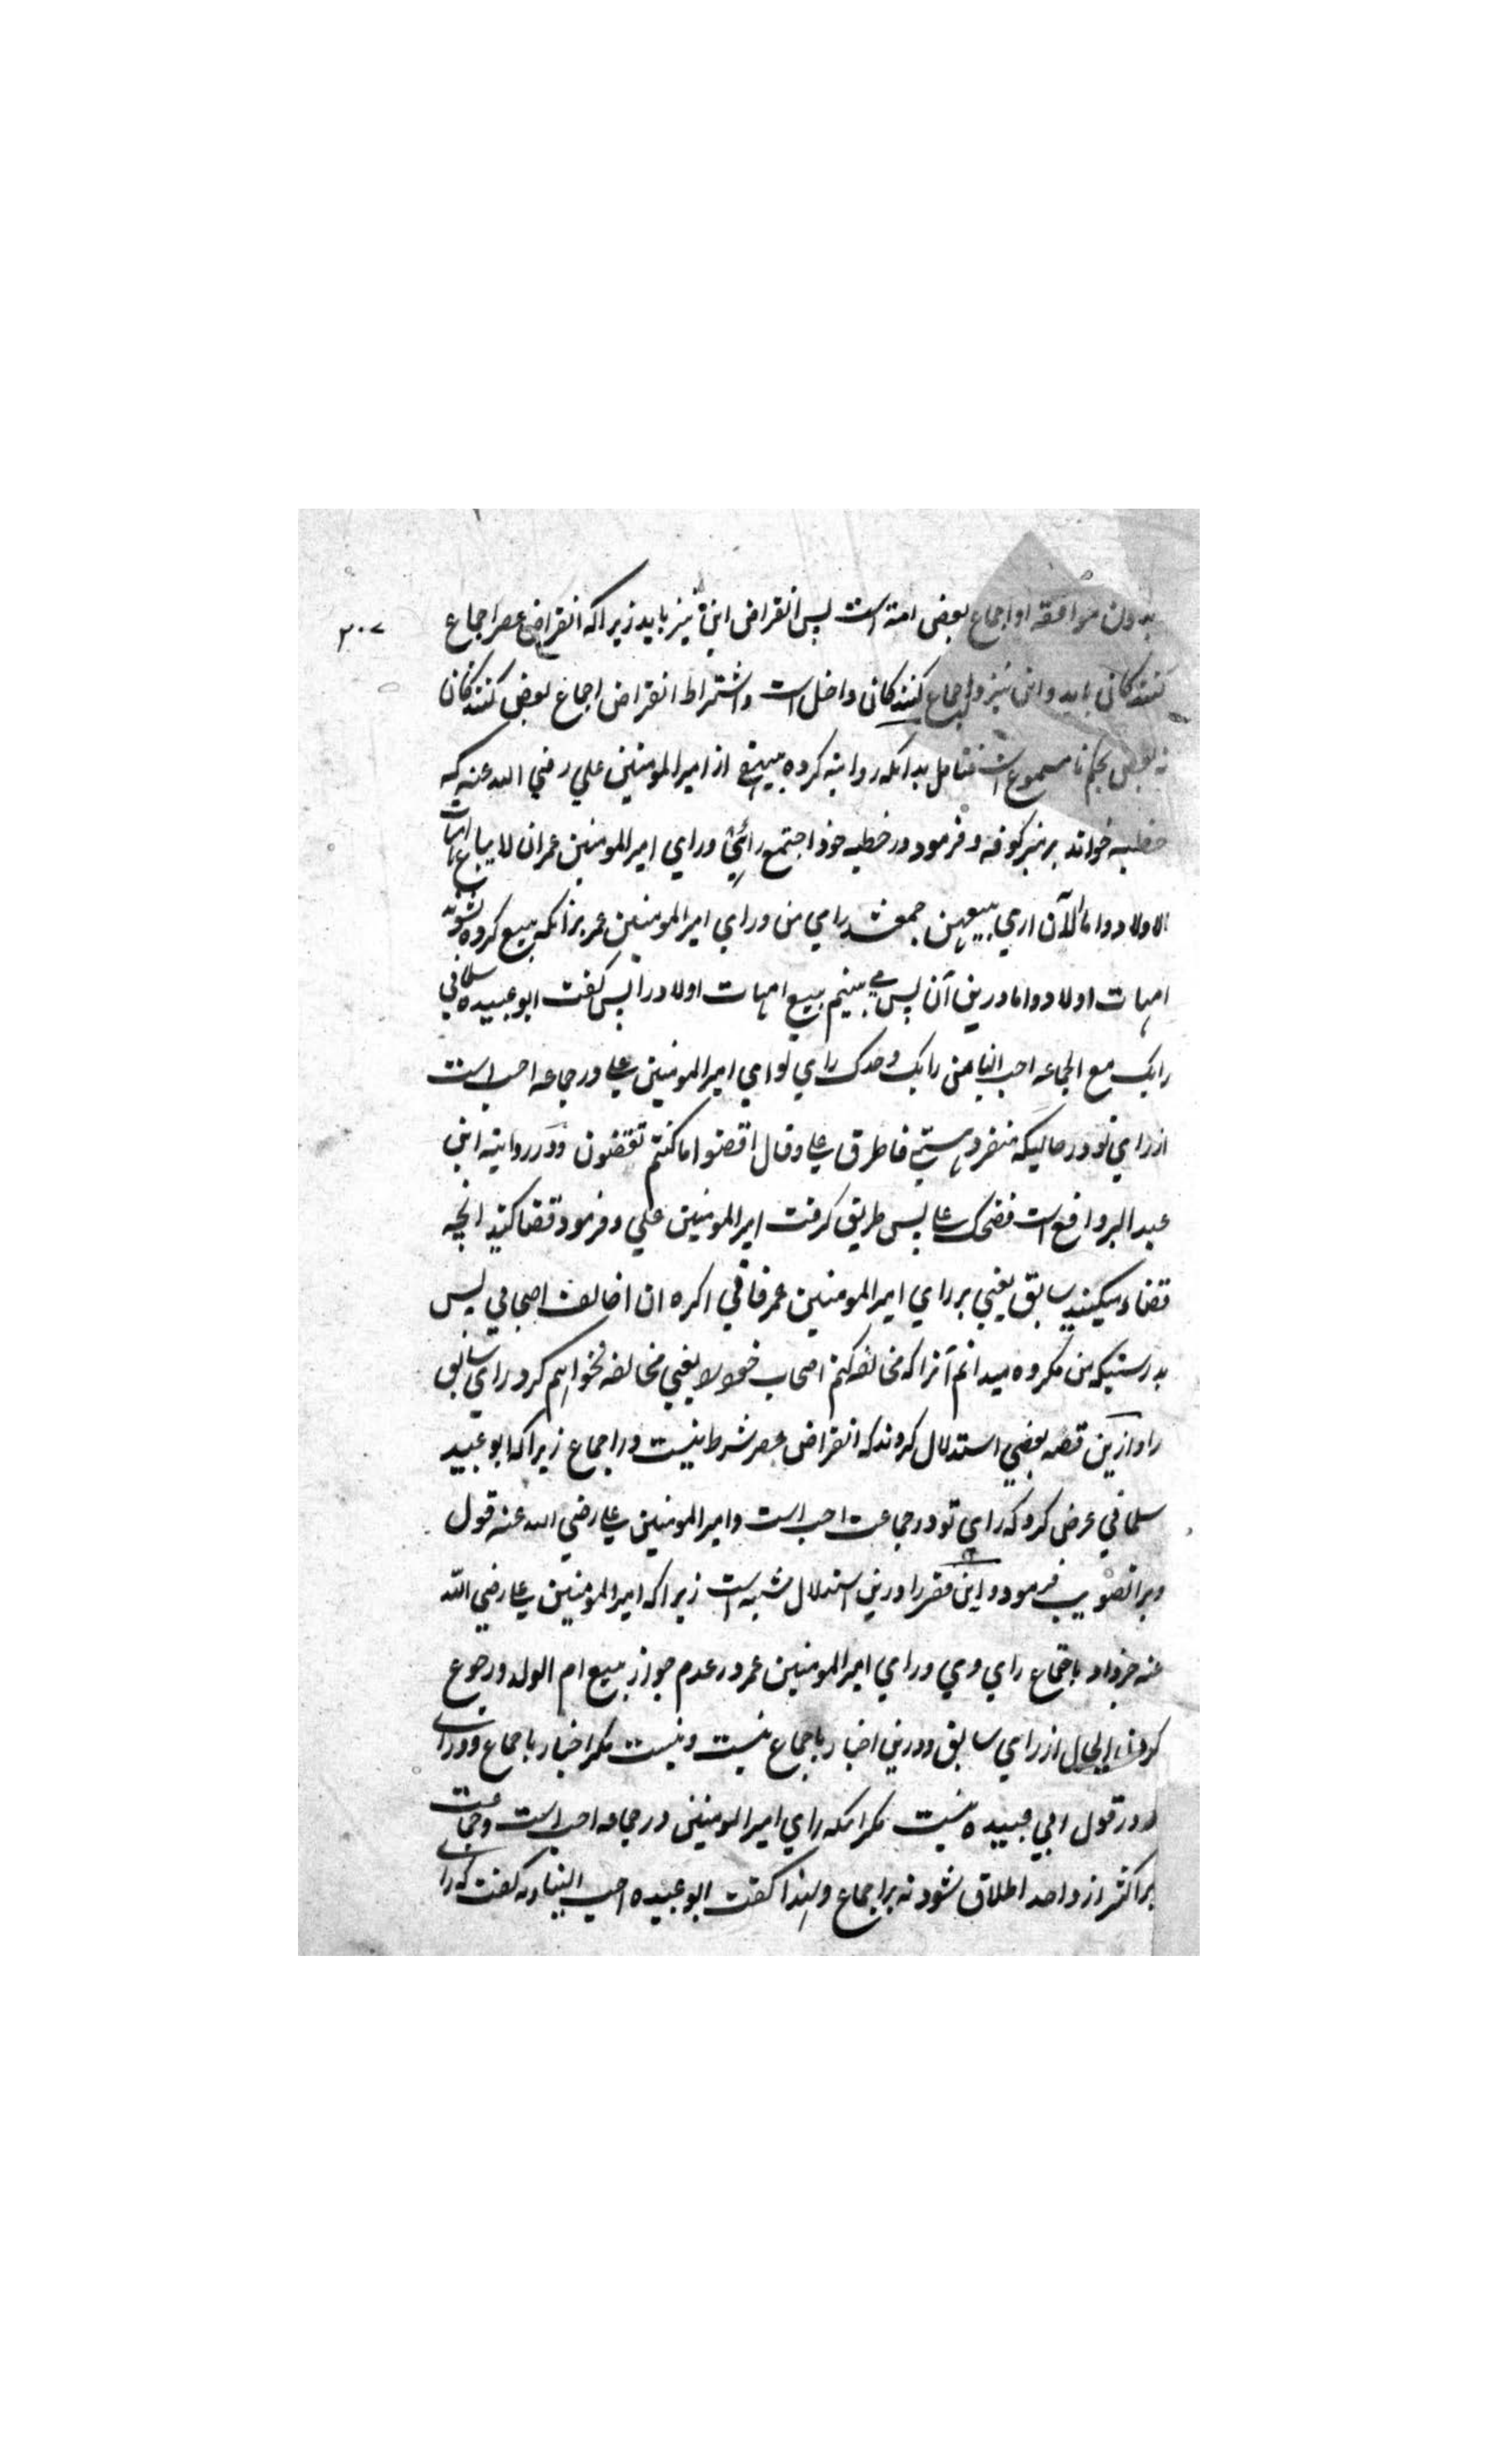 بدون موافقة او اجماع بعض امة است پس انقراض این نیز باید زیرا که انقراض عصر اجماع
۳۰۷
کنندکانی باید و این نیز در اجماع کنندکانی داخل است و اشتراط انقراض اجماع بعض کنندکان
نه بعض تحکم نا مسموع است فتامل بدانکه روایته کرده بیهقی از امیر المومنین علي رضي الله عنه که
خطبه خواند بر منبر کوفه و فرمود در خطبه خود اجتمع رائي وراي امیر المومنین عمر ان لا یباع امهات
الاولاد و اما الآن اري بیعهن جمع شد راي من و راي امیر المومنین عمر بر آنکه بیع کرده نشوند
امهات اولاد و اما درین آن پس مي بینم بیع امهات اولاد را پس کفت ابو عبیده سلماني
رایک مع الجماعه احب الینا من رایک وحدک راي تو اي امیر المومنین علي در جماعه احب است
از راي تو در حالیکه منفرد هستي فاطرق علي و قال اقضوا ما کنتم تقضون و در روایته ابن
عبد البر واقع است فضحک علي پس طریق کرفت امیر المومنین علي و فرمود قضا کنید انچه
قضاء میکنید سابق یعني بر راي امیر المومنین عمر فاني اکره ان اخالف اصحابي پس
بدرستیکه من مکروه میدانم آنرا که مخالفه کنم اصحاب خود را یعني مخالفه نخواهم کرد راي سابق
را و ازین قصه بعضي استدلال کردند که انقراض عصر شرط نیست در اجماع زیرا که ابو عبید
سلماني عرض کرد که راي تو در جماعت احب است و امیر المومنین علي رضي الله عنه قول
ویرا تصویب فرمود و این فقیر را درین استدلال شبه است زیرا که امیر المومنین علي رضي الله
عنه خبر داد باجتماع راي وي و راي امیر المومنین عمر در عدم جواز بیع ام الولد و رجوع
کردن الحال از راي سابق و درین اخبار باجماع نیست و نیست مکر اخبار باجماع دو راي
و در قول ابي عبیده نیست مکر انکه راي امیر المومنین در جماعه احب است و جماعت
بر اکثر از واحد اطلاق شود نه بر اجماع و لهذا کفت ابو عبیده احب الینا و نه کفت که راي